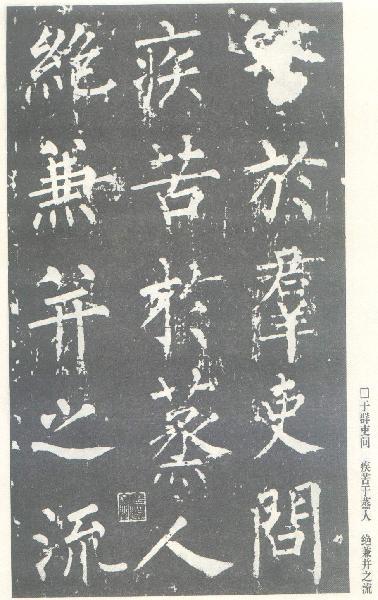 於羣吏問
疾苦於蒸人
絶兼并之流
□于群吏问 疾苦于蒸人 绝兼并之流